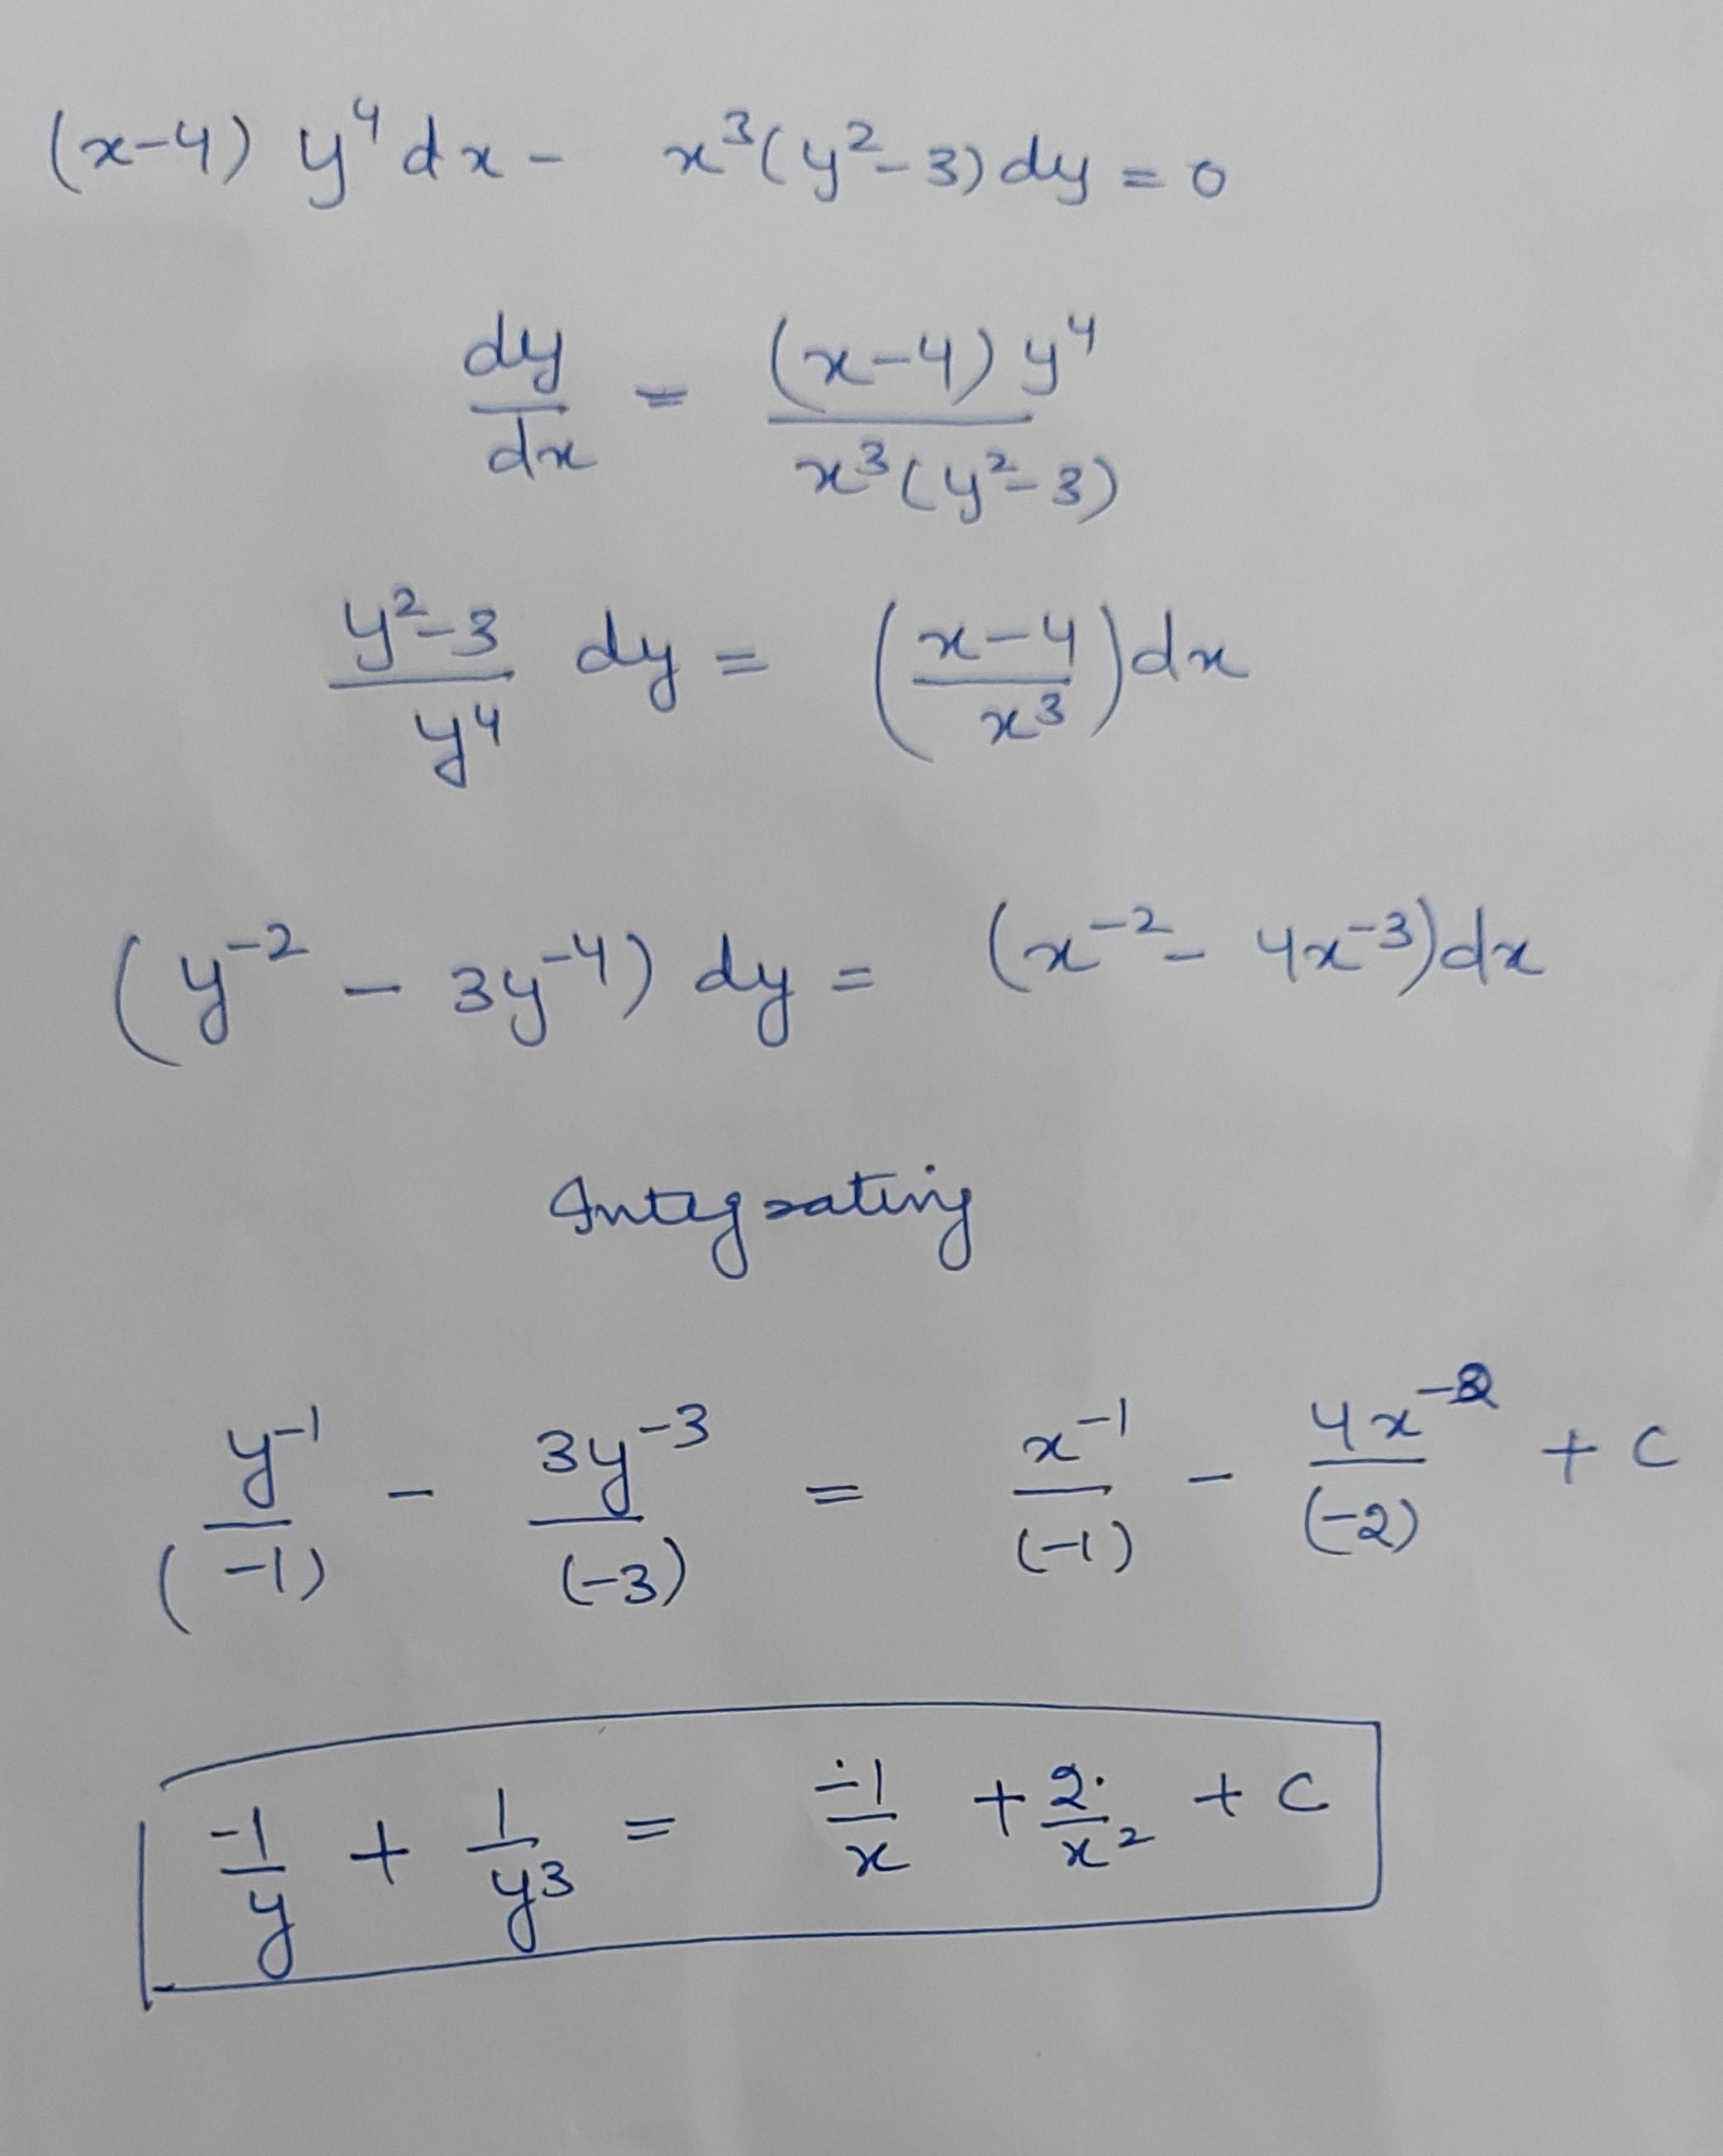 (x-4) y⁴ dx - x³(y²-3) dy = 0
dy/dx = (x-4) y⁴ / x³(y²-3)
y²-3 / y⁴ dy = (x-4 / x³) dx
(y⁻² - 3y⁻⁴) dy = (x⁻² - 4x⁻³) dx
Integrating
y⁻¹/(-1) - 3y⁻³/(-3) = x⁻¹/(-1) - 4x⁻²/(-2) + C
-1/y + 1/y³ = -1/x + 2/x² + C